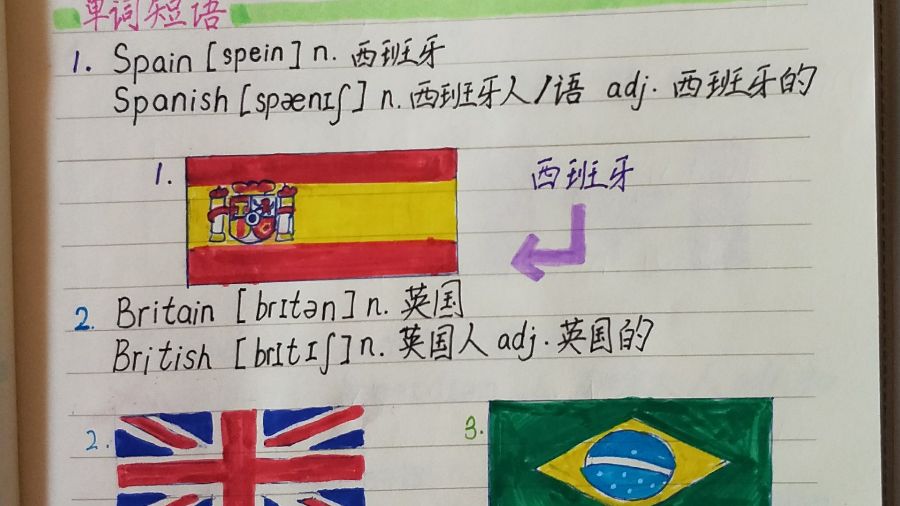 单词短语
1. Spain [spein] n. 西班牙
Spanish [spænɪʃ] n. 西班牙人/语 adj. 西班牙的
1. 西班牙
2. Britain [brɪtən] n. 英国
British [brɪtɪʃ] n. 英国人 adj. 英国的
2. 3.